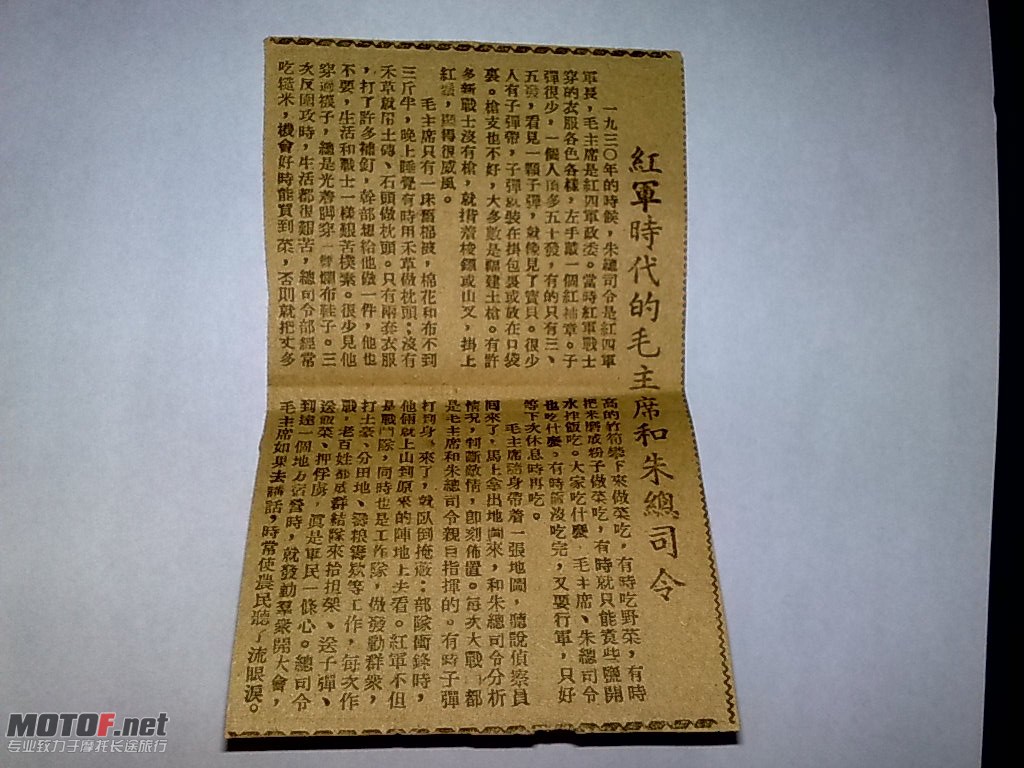 紅軍時代的毛主席和朱總司令
一九三〇年的時候，朱總司令是紅四軍
軍長，毛主席是紅四軍政委。當時紅軍戰士
穿的衣服各色各樣，左手戴一個紅袖章。子
彈很少，一個人頂多五十發，有的只有三、
五發，看見一顆子彈，就像見了寶貝。很少
人有子彈帶，子彈就裝在掛包裏或放在口袋
裏。槍支也不好，大多數是福建土槍。有許
多新戰士沒有槍，就揹着梭鏢或山叉，掛上
紅纓，顯得很威風。
毛主席只有一床舊棉被，棉花和布不到
三斤半，晚上睡覺有時用禾草做枕頭；沒有
禾草就用土磚、石頭做枕頭。只有兩套衣服
，打了許多補釘，幹部想給他做一件，他也
不要，生活和戰士一樣艱苦樸素。很少見他
穿過襪子，總是光着脚穿一雙爛布鞋子。三
次反圍攻時，生活都很艱苦，總司令部經常
吃糙米，機會好時能買到菜，否則就把丈多
高的竹筍攀下來做菜吃，有時吃野菜，有時
把米磨成粉子做菜吃，有時就只能煮些鹽開
水拌飯吃。大家吃什麼，毛主席、朱總司令
也吃什麼。有時飯沒吃完，又要行軍，只好
等下次休息時再吃。
毛主席隨身帶着一張地圖，聽說偵察員
回來了，馬上拿出地圖來，和朱總司令分析
情況，判斷敵情，即刻佈置。每次大戰，都
是毛主席和朱總司令親自指揮的。有時子彈
打到身來了，就臥倒掩蔽；部隊衝鋒時，
他倆就上山到原來的陣地上去看。紅軍不但
是戰鬥隊，同時也是工作隊，做發動群衆，
打土豪、分田地、籌粮籌欵等工作，每次作
戰，老百姓都成群結隊來抬担架、送子彈、
送飯菜、押俘虜，眞是軍民一條心。總司令
到達一個地方宿營時，就發動羣衆開大會，
毛主席如果去講話，時常使農民聽了流眼淚。
MOTOF.net
专业致力于摩托长途旅行